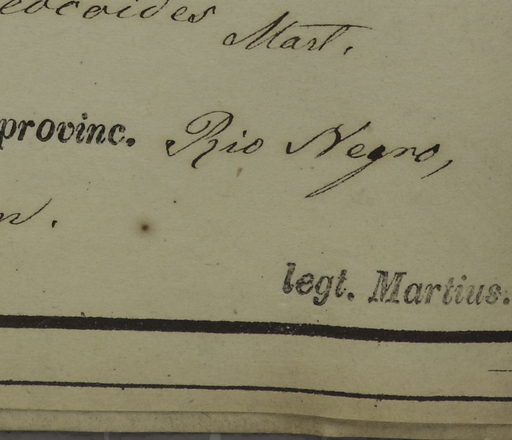 eocoides Mart.
provinc. Rio Negro,
legt. Martius.